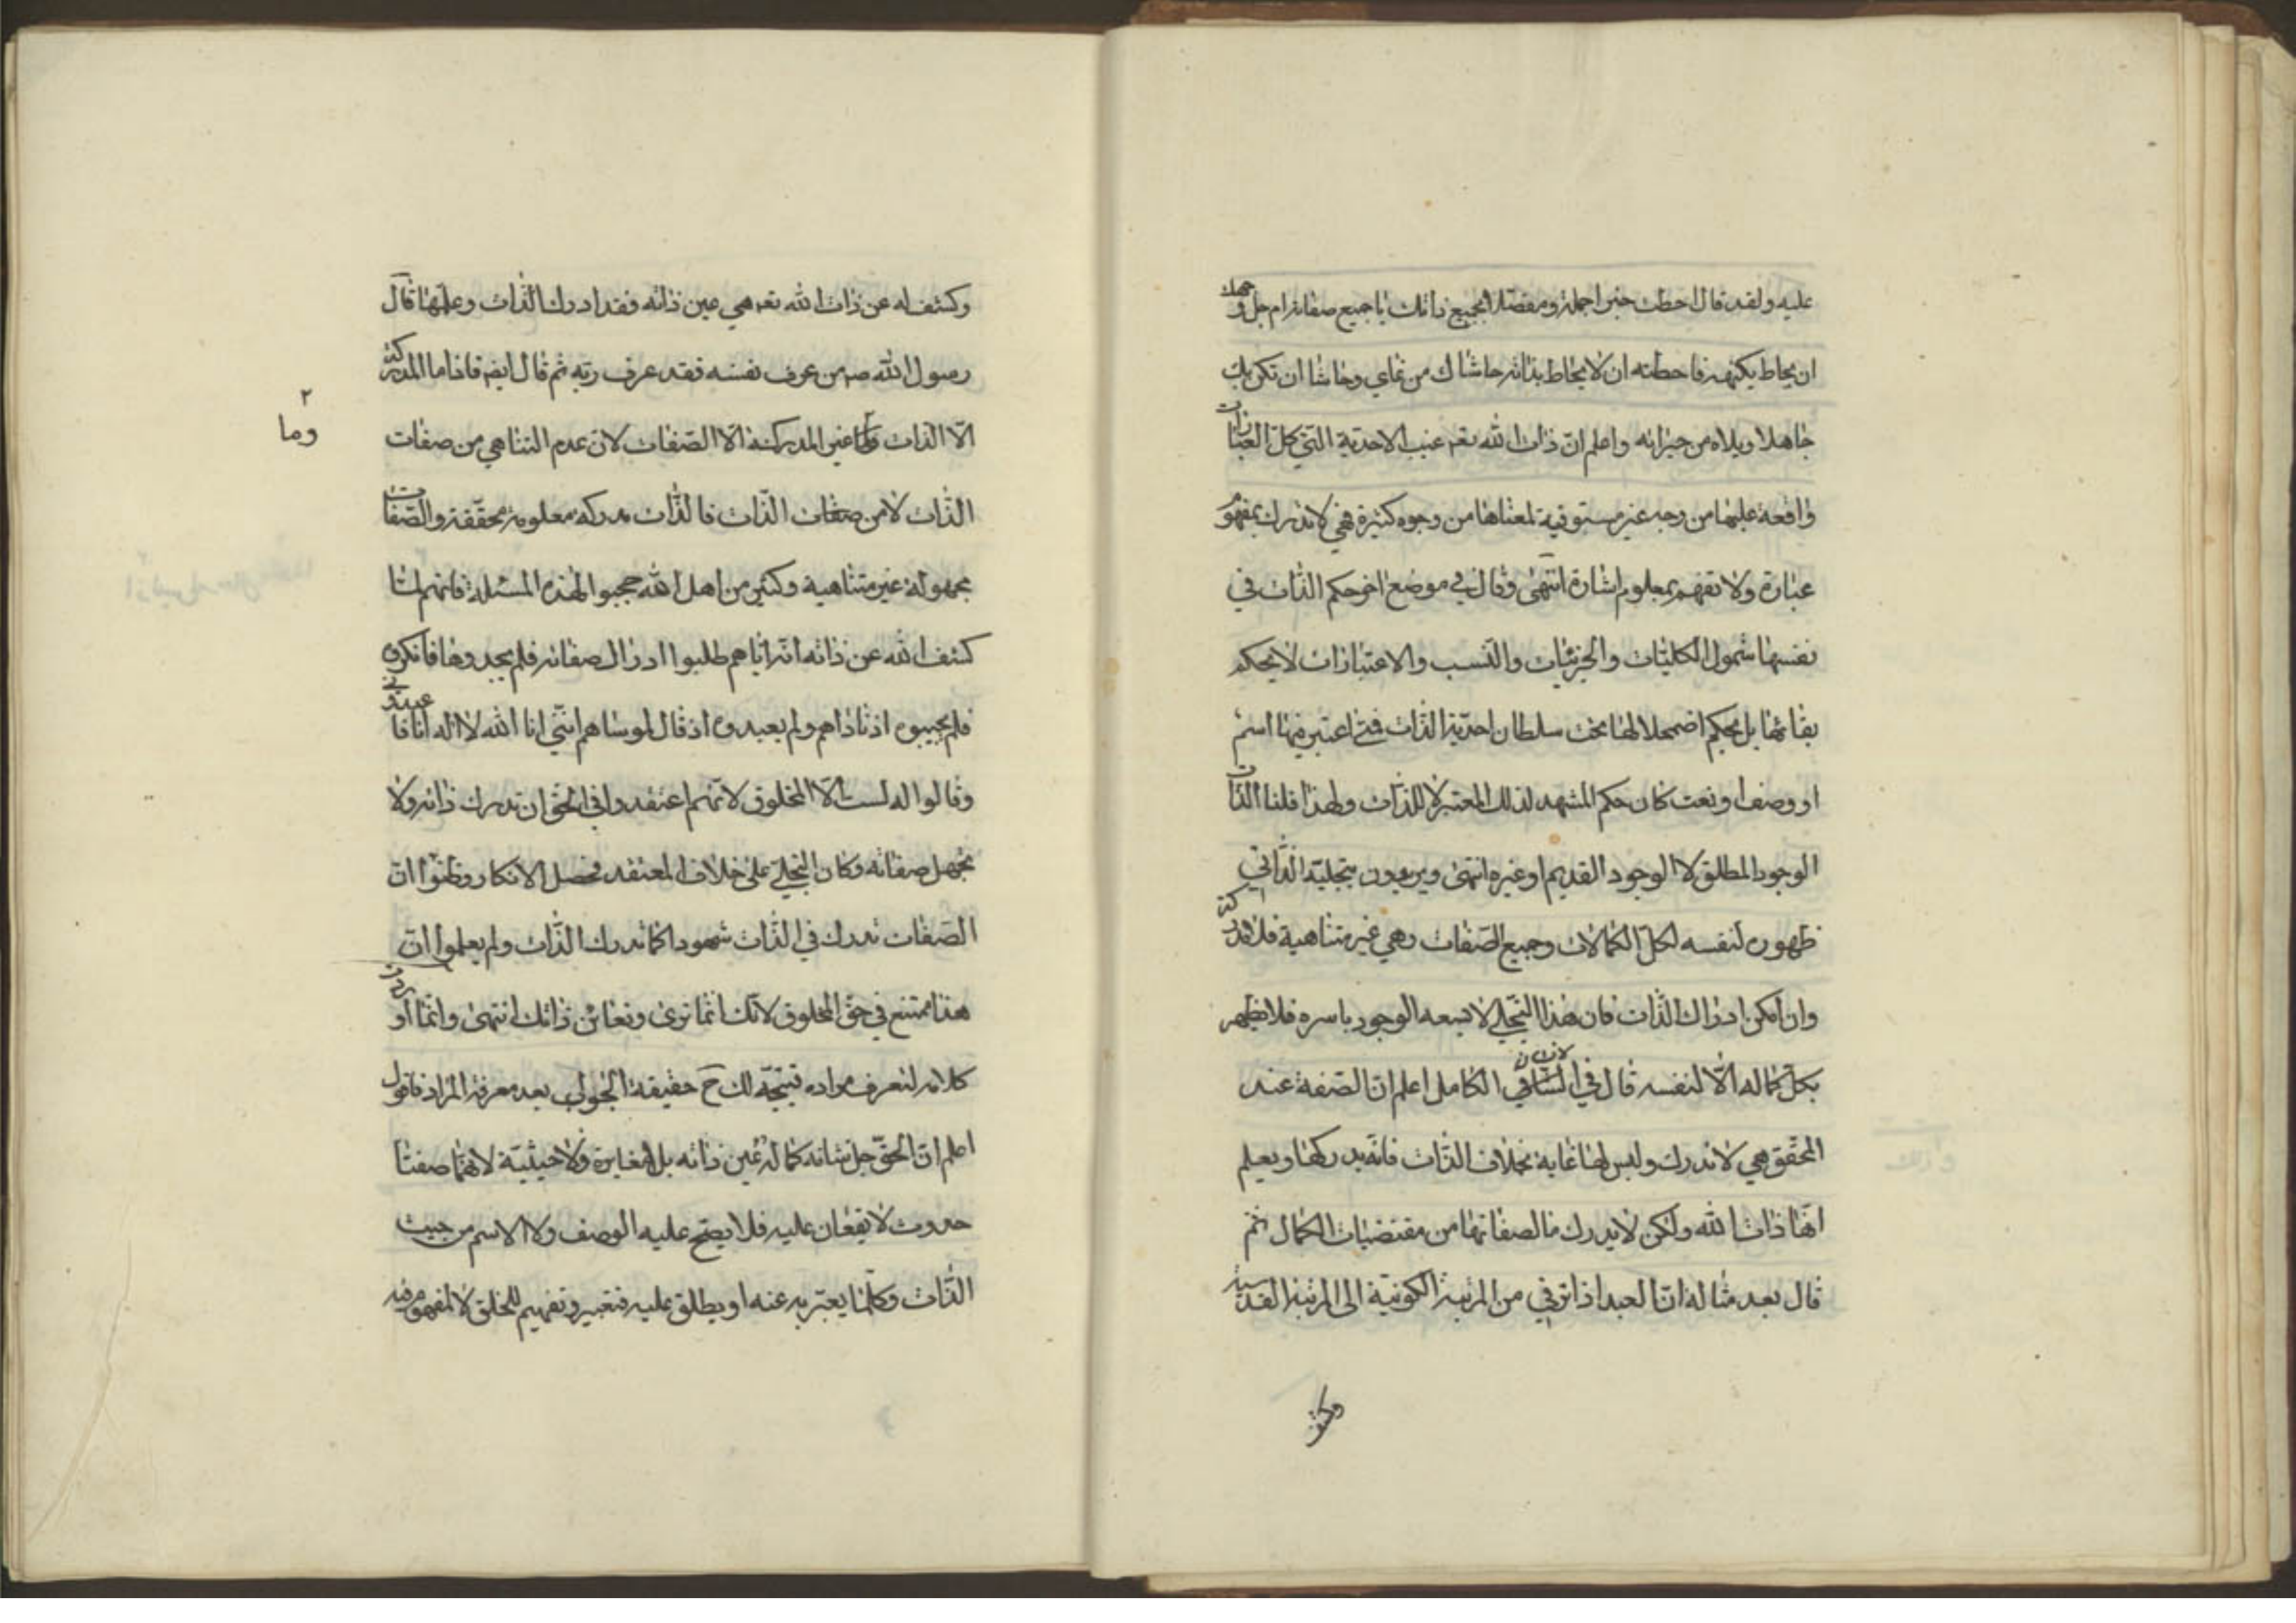 عليه ولقد قال احطت خبرا جملة ومفصلا بجميع ذاتك يا جميع صفاته ام جل وجهك
ان يحاط بكنهه فاحطته ان لا يحاط بذاته حاشاك من غاي وحاشا ان تكن بك
جاهلا ويلاه من حيراته واعلم ان ذات الله تعـ غيب الاحدية التي كل العبارات
واقعة عليها من وجه غير مستوفية لمعناها من وجوه كثيرة فهي لا تدرك بمفهوم
عبارة ولا تفهم بمعلوم اشارة انتهى وقال في موضع اخر حكم الذات في
نفسها شمول الكليات والجزئيات والنسب والاعتبارات لا بحكم
بقائها بل بحكم اضمحلالها تحت سلطان احدية الذات فمتى اعتبر فيها اسم
او وصف او نعت كان حكم المشهد لذلك المعتبر لا للذات ولهذا قلنا الذات
الوجود المطلق لا الوجود القديم او غيره انتهى ويريدون بتجليه الذاتي
ظهوره لنفسه لكل الكمالات وجميع الصفات وهي غير متناهية فلا تدرك
وان امكن ادراك الذات فان هذا التجلي لا يسعه الوجود باسره فلا يظهر
بكل كماله الا لنفسه قال في الانسان الكامل اعلم ان الصفة عند
المحقق هي لا تدرك وليس لها غاية بخلاف الذات فانه يدركها ويعلم
انها ذات الله ولكن لا يدرك ما لصفاتها من مقتضيات الكمال ثم
قال بعد مثاله ان العبد اذا ترقى من المرتبة الكونية الى المرتبة القدسية
وكشف
وكشف له عن ذات الله تعـ هي عين ذاته فقد ادرك الذات وعلمها قال
رسول الله صـ من عرف نفسه فقد عرف ربه ثم قال ايضـ فاذا ما المدركة
الا الذات وما غير المدركة الا الصفات لان عدم التناهي من صفات
٢
وما
الذات لا من صفات الذات فالذات مدركه معلومة محققة والصفات
مجهولة غير متناهية وكثير من اهل الله حجبوا بهذه المسئلة فانهم لما
كشف الله عن ذاته انه اياهم طلبوا ادراك صفاته فلم يجدوها فانكروه
فلم يجيبوه اذ ناداهم ولم يعبدوه اذ قال لموساهم انني انا الله لا اله انا فاعبدوني
وقالوا له لست الا المخلوق لانهم اعتقدوا في الحق ان تدرك ذاته ولا
تجهل صفاته وكان التجلي على خلاف المعتقد فحصل الانكار وظنوا ان
الصفات تدرك في الذات شهودا كما تدرك الذات ولم يعلموا ان
هذا ممتنع في حق المخلوق لانك انما ترى وتعاين ذاتك انتهى وانما اوردت
كلامه لتعرف مراده فيتجه لك ح حقيقة الجواب بعد معرفة المراد فاقول
اعلم ان الحق جل شانه كماله عين ذاته بلا مغايرة ولا حيثية لانهما صفتا
حدوث لا يقعان عليه فلا يصح عليه الوصف ولا الاسم من حيث
الذات وكلما يعبر به عنه او يطلق عليه فتعبير وتفهيم للخلق لا لمفهوم